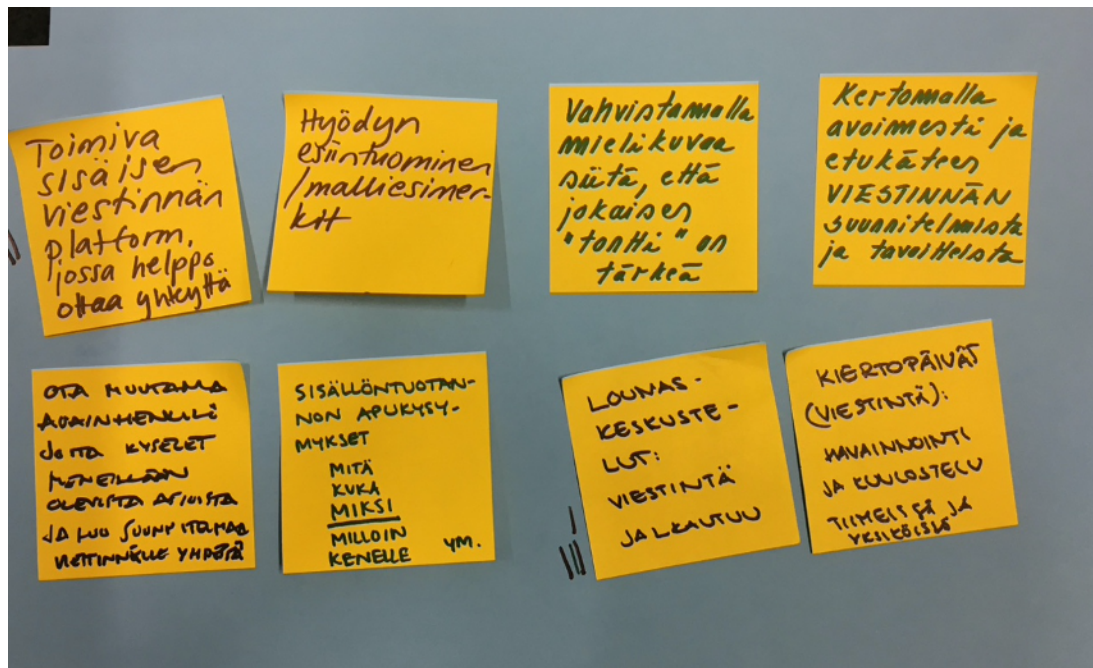 Toimiva
sisäisen
viestinnän
platform,
jossa helppo
ottaa yhteyttä
Hyödyn
esiintuominen
/malliesimer-
kit
Vahvistamalla
mielikuvaa
siitä, että
jokaisen
"tontti" on
tärkeä
Kertomalla
avoimesti ja
etukäteen
VIESTINNÄN
suunnitelmista
ja tavoitteista
OTA MUUTAMA
AVAINHENKILÖ
JOITA KYSELET
MENEILLÄÄN
OLEVISTA ASIOISTA
JA LUO SUUNNITELMAA
VIESTINNÄLLE YHDESSÄ
SISÄLLÖNTUOTAN-
NON APUKYSY-
MYKSET
MITÄ
KUKA
MIKSI
MILLOIN
KENELLE YM.
LOUNAS-
KESKUSTE-
LUT:
VIESTINTÄ
JALKAUTUU
KIERTOPÄIVÄT
(VIESTINTÄ):
HAVAINNOINTI
JA KUULOSTELU
TIIMEISSÄ JA
YKSIKÖISSÄ